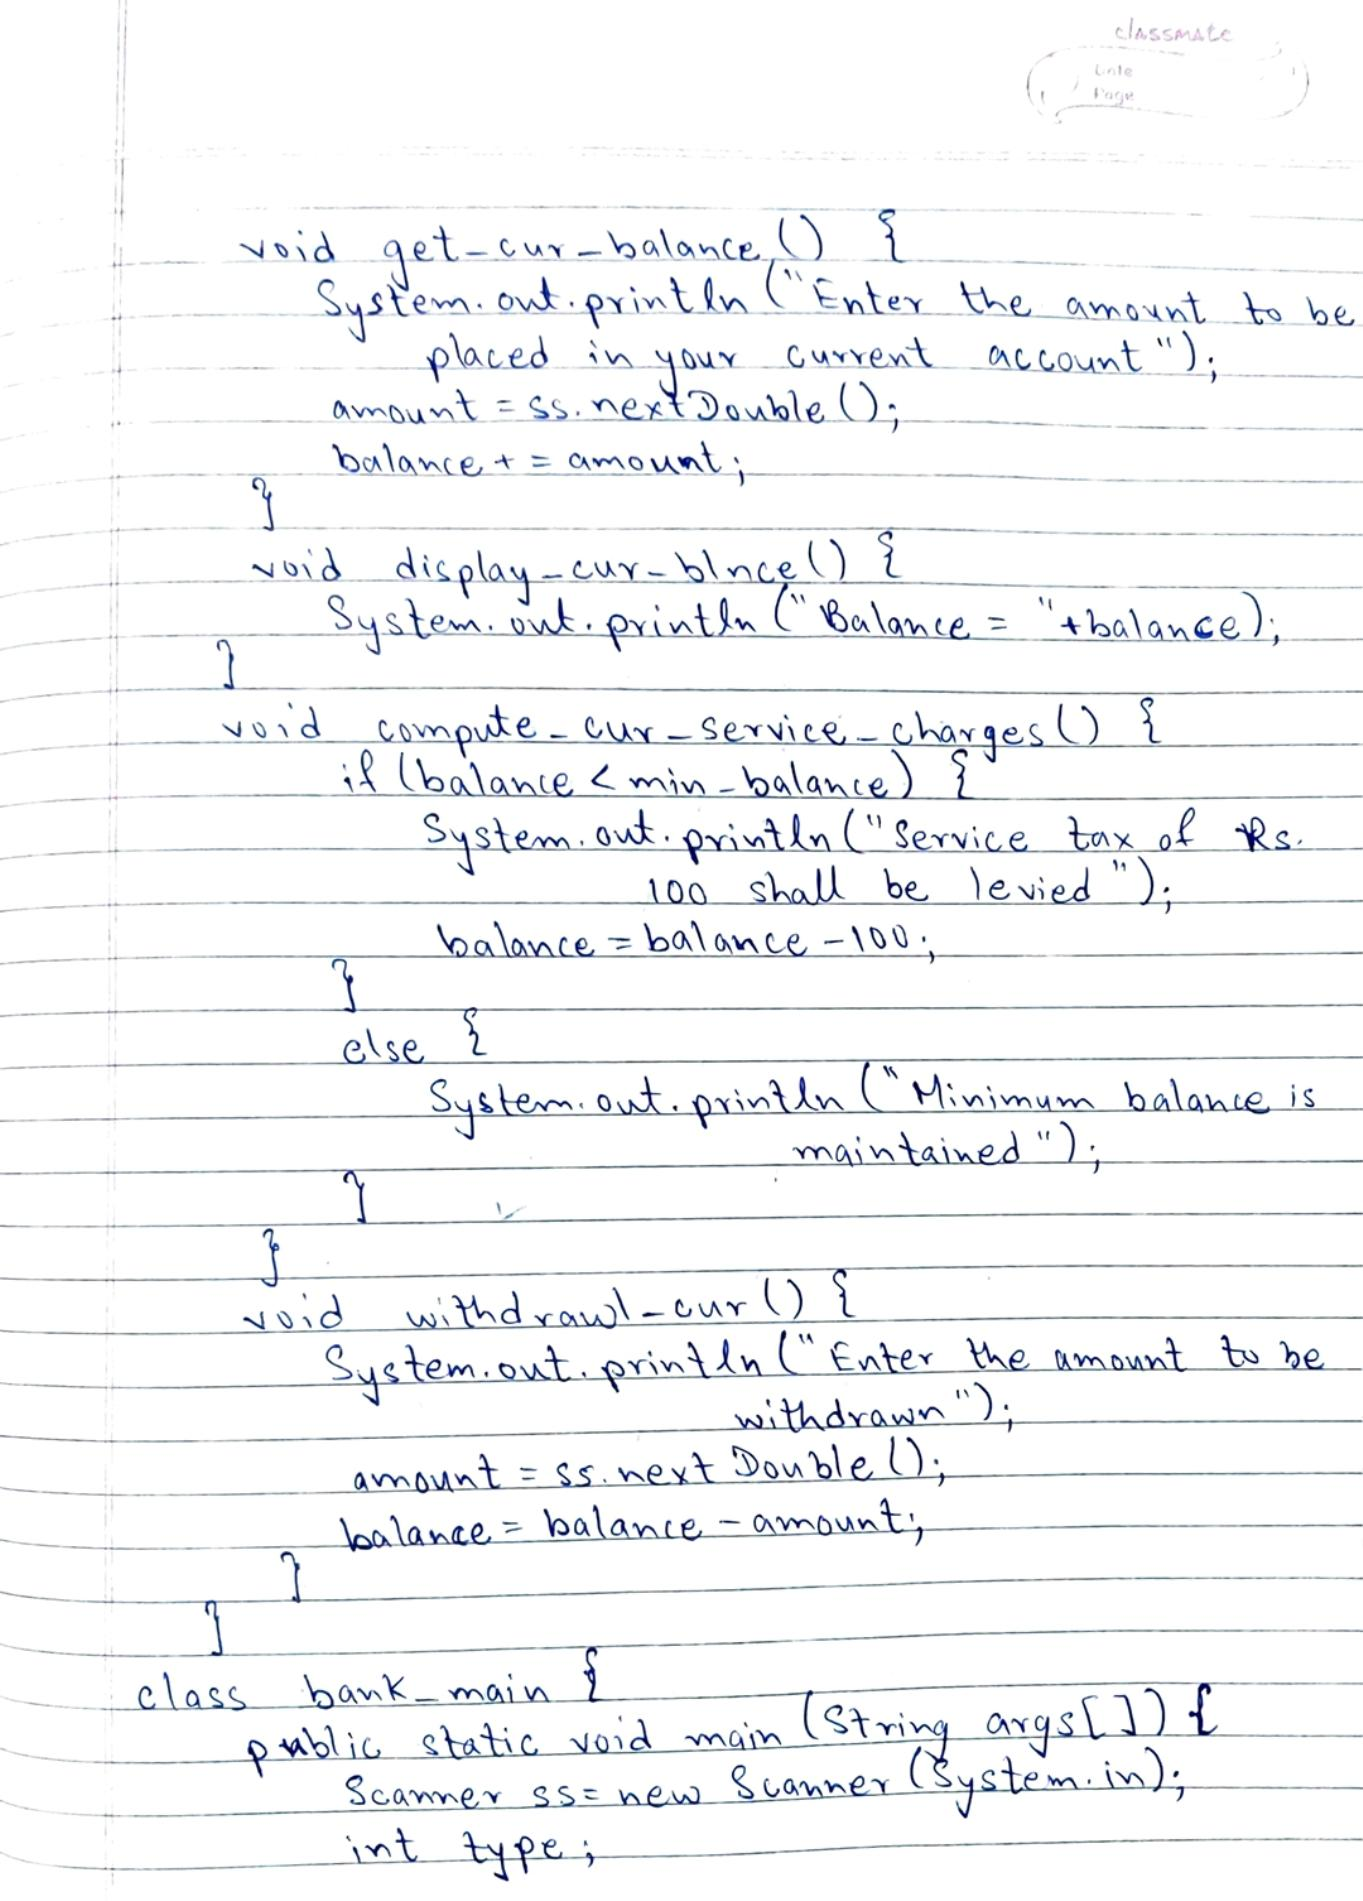 classmate
Date
Page
void get_cur_balance() {
System.out.println ("Enter the amount to be
placed in your current account");
amount = ss.nextDouble();
balance += amount;
}
void display_cur_blnce() {
System.out.println ("Balance = "+balance);
}
void compute_cur_service_charges() {
if (balance < min_balance) {
System.out.println ("Service tax of Rs.
100 shall be levied");
balance = balance - 100;
}
else {
System.out.println ("Minimum balance is
maintained");
}
}
void withdrawl_cur() {
System.out.println ("Enter the amount to be
withdrawn");
amount = ss.nextDouble();
balance = balance - amount;
}
}
class bank_main {
public static void main (String args[]) {
Scanner ss = new Scanner (System.in);
int type;